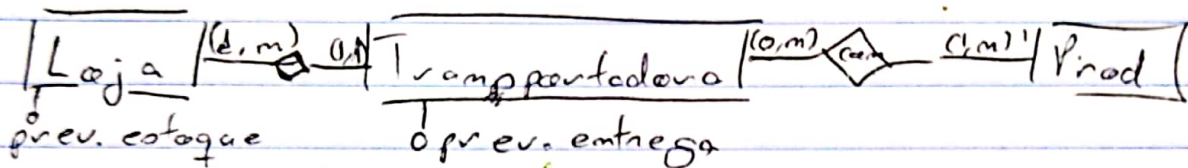 Loja (1,m) (1,1) Transportadora (0,m) (1,m) Prod
prev. estoque prev. entrega